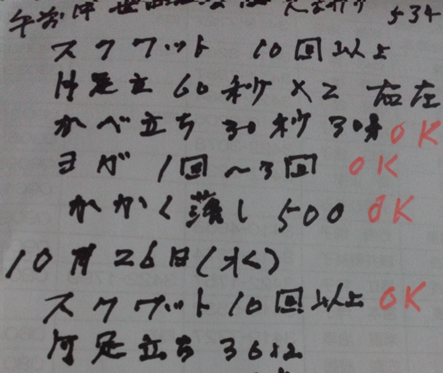 午前中
スクワット 10回以上
片足立 60秒×2 右左
かべ立ち 30秒30秒 OK
ヨガ 1回〜3回 OK
かかと落し 500 OK
10月26日(水)
スクワット10回以上 OK
片足立ち 30×2